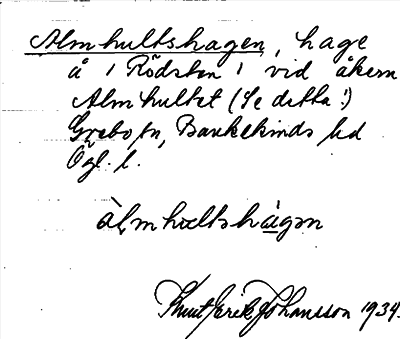 Almhultshagen, hage
å 1 Rödsten 1 vid åkern
Almhultet (Se detta!)
Grebo sn, Bankekinds hd
Ögl. l.
àlmhultshàgən
Knut Erik Johansson 1934.